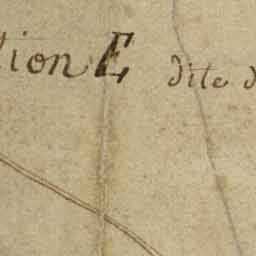 tion E dite d